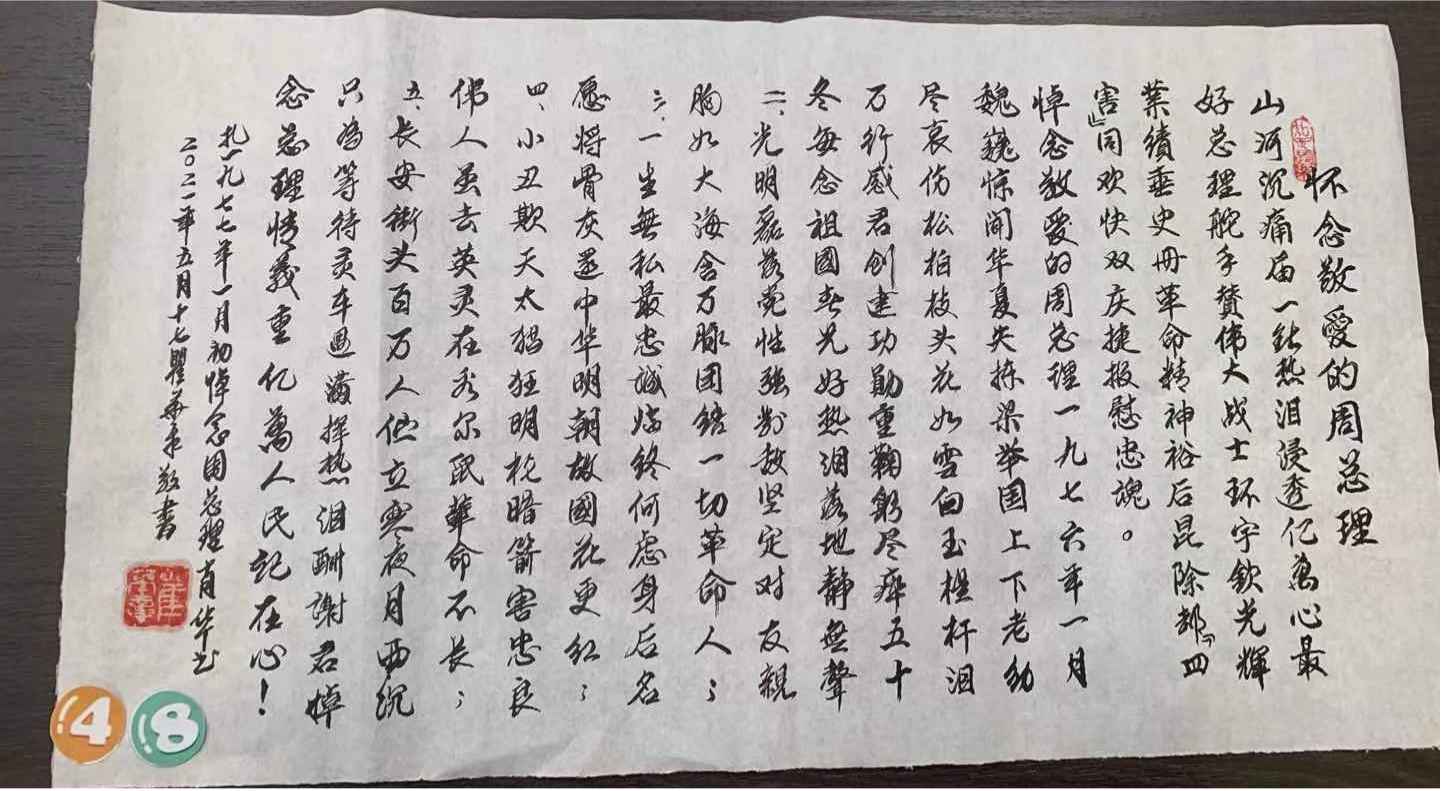 怀念敬爱的周总理
山河沉痛届一秋热泪浸透亿万心最
好总理舵手赞伟大战士环宇钦光輝
業绩垂史册革命精神裕后昆除却『四
害』同欢快双庆捷报慰忠魂。
悼念敬爱的周总理一九七六年一月
巍巍惊闻华夏失栋梁举国上下老幼
尽哀伤松柏枝头花如雪白玉栏杆泪
万行感君创建功勋重鞠躬尽瘁五十
冬每念祖國春光好热泪落地静無聲
二、光明磊落党性强對敌坚定对友親
胸如大海含万脉团结一切革命人；
三、一生無私最忠誠临终何虑身后名
愿将骨灰還中华明朝故國花更红；
四、小丑欺天太猖狂明枪暗箭害忠良
伟人虽去英灵在民華命不長；
五、长安街头百万人伫立寒夜月西沉
只為等待灵车過满挥热泪酬謝君悼
念总理情義重亿萬人民記在心！
扎一九七七年一月初悼念周总理肖华
二〇二一年五月十七瞿書
4 8